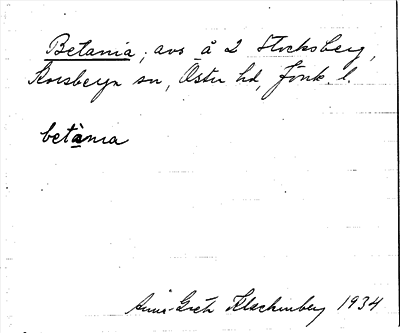 Betania, avs å 2 Stocksberg,
Korsberga sn, Östra hd, Jönk. l.
betània
Anna-Greta Klackenberg 1934